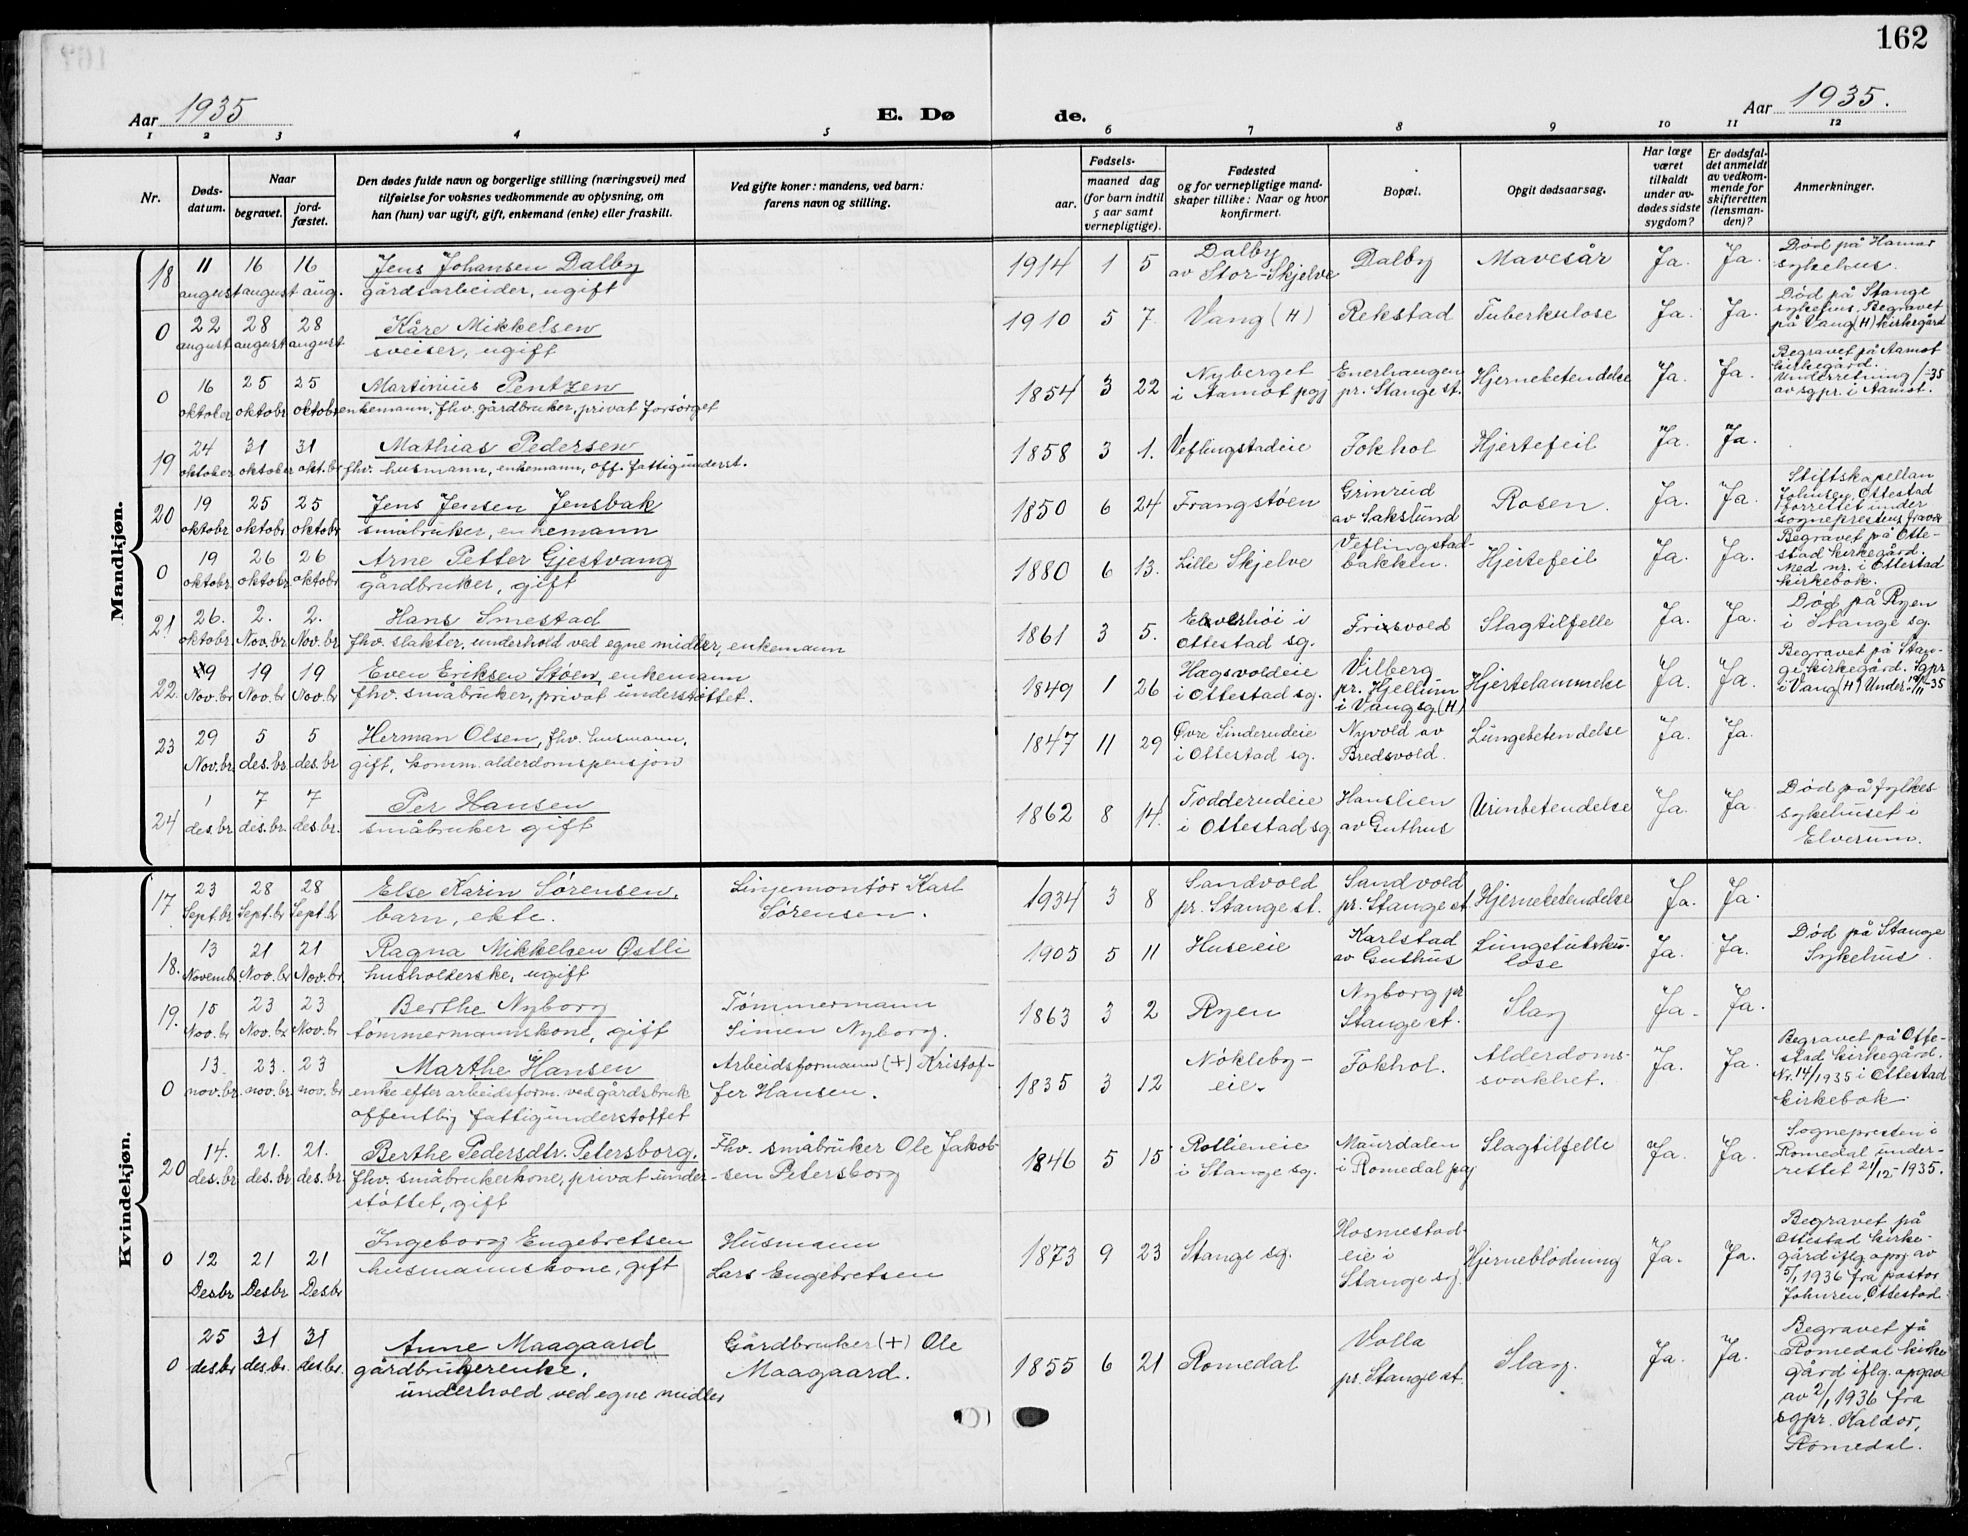 162
Aar 1935 E. Dø de. Aar 1935.
1 2 3 4 5 6 7 8 9 10 11 12
Nr.
Døds-
datum.
Naar
begravet.
jord-
fæstet.
Den dødes fulde navn og borgerlige stilling (næringsvei) med
tilføielse for voksnes vedkommende av oplysning, om
han (hun) var ugift, gift, enkemand (enke) eller fraskilt.
Ved gifte koner: mandens, ved barn:
farens navn og stilling.
Fødsels-
aar.
maaned dag
(for barn indtil
5 aar samt
vernepligtige).
Fødested
og for vernepligtige mand-
skaper tillike: Naar og hvor
konfirmert.
Bopæl.
Opgit dødsaarsag.
Har læge
været
tilkaldt
under av-
dødes sidste
sygdom?
Er dødsfal-
det anmeldt
av vedkom-
mende for
skifteretten
(lensman-
den)?
Anmerkninger.
Mandkjøn.
18 11 16 16 Jens Johansen Dalby 1914 1 5 Dalby Dalby Mavesår Ja. Ja. Død på Hamar
august august aug. gårdsarbeider, ugift av Stor-Skjelve sykehus.
0 22 28 28 Kåre Mikkelsen 1910 5 7 Vang (H) Rekstad Tuberkulose Ja. Ja. Død på Stange
august august august sveiser, ugift sykehus. Begravet
på Vang (H) kirkegård
0 16 25 25 Martinius Pentzen 1854 3 22 Nyberget Enerhaugen Hjernebetendelse Ja. Ja. Begravet på Aamot
oktober oktobr oktobr enkemann, fhv. gårdbruker, privat forsørget i Aamot pgj pr. Stange st. kirkegård.
Underretning /-35
av sgpr. i Aamot.
19 24 31 31 Mathias Pedersen 1858 3 1. Veflingstadeie Fokhol Hjertefeil Ja. Ja.
oktober oktober okt.br fhv. husmann, enkemann, off. fattigunderst.
20 19 25 25 Jens Jensen Jensbak 1850 6 24 Frangstøen Grinrud Rosen. Ja. Ja. Stiftskapellan
oktobr oktobr oktobr småbruker, enkemann av Sakslund Johnsen, Ottestad
forrettet under
sogneprestens fravær
0 19 26 26 Arne Petter Gjestvang 1880 6 13. Lille Skjelve Veflingstad- Hjertefeil Ja. Ja. Begravet på Otte-
oktobr oktobr oktobr gårdbruker, gift bakken. stad kirkegård.
Med nr. i Ottestad
kirkebok.
21 26. 2. 2. Hans Smestad 1861 3 5. Elverhøi i Frisvold Slagtilfelle Ja. Ja. Død på Ryen
oktobr. Nov.br Nov.br fhv. slakter, underhold ved egne midler, enkemann Ottestad sg. i Stange sg.
22. 9 19 19 Even Eriksen Støen, enkemann 1849 1 26 Hagsvoldeie Vilberg Hjertelammelse Ja. Ja. Begravet på Stan-
Nov.br Nov.br Nov.br fhv. småbruker, privat understøttet. i Ottestad sg. pr. Hjellum ge kirkegård. Sgpr
i Vang sg (H) i Vang (H) Under. /11-35
23 29 5 5 Herman Olsen, fhv. husmann, 1847 11 29 Øvre Sinderudeie Nyvold av Lungebetendelse Ja. Ja.
Nov.br des.br des.br gift, komm. alderdomspensjon i Ottestad sg. Bredsvold.
24 1 7 7 Per Hansen 1862 8 14. Todderudeie Hanslien Urinbetendelse Ja. Ja. Død på fylkes
des.br des.br. des.br. småbruker gift i Ottestad sg av Guthus sykehuset i
Elverum.
Kvindekjøn.
17 23 28 28 Else Karin Sørensen, Linjemontør Karl 1934 3 8 Sandvold Sandvold Hjernebetendelse Ja. Ja.
Sept.br Sept.br Sept.br barn, ekte. Sørensen. pr. Stange st. pr. Stange st
18. 13 21 21 Ragna Mikkelsen Østli 1905 5 11 Huseeie Karlstad Lungetuberku- Ja. Ja. Død på Stange
Novembr. Nov.br Nov.br husholderske, ugift av Guthus lose Sykehus
19. 15 23 23 Berthe Nyborg Tømmermann 1863 3 2 Ryen Nyborg pr Slag Ja. Ja.
Nov.br Nov.br Nov.br tømmermannskone, gift Simen Nyborg. Stange st.
0 13. 23. 23 Marthe Hansen Arbeidsformann (+) Kristof- 1835 3 12 Nøkleby- Fokhol. Alderdoms- Ja. Ja. Begravet på Otte-
nov.br nov.br nov.br enke efter arbeidsform. ved gårdsbruk fer Hansen. eie. svakhet. stad kirkegård.
offentlig fattigunderstøttet Nr. 14/1935 i Ottestad
kirkebok.
20 14. 21. 21. Berthe Pedersdtr. Petersborg. Fhv. småbruker Ole Jakob- 1846 5 15 Rollieneie Maurdalen Slagtilfelle Ja. Ja. Sognepresten i
des.br des.br des.br fhv. småbrukerkone, privat under- sen Petersborg i Stange sg. i Romedal pgj Romedal under-
støttet, gift rettet 21/12-1935.
0 12 21 21 Ingeborg Engebretsen Husmann 1873 9 23 Stange sg. Hosmestad- Hjerneblødning Ja. Ja. Begravet på
Desbr Desbr Desbr husmannskone, gift Lars Engebretsen eie i Ottestad kirke-
Stange sg. gård iflg. opg. av
5/1 1936 fra pastor
Johnsen, Ottestad.
0 25 31 31 Anne Maagaard Gårdbruker (+) Ole 1855 6 21 Romedal Volla Slag. Ja. Ja. Begravet på
des.br des.br. des.br. gårdbrukerenke. Maagaard. pr. Stange st. Romedal kirke
underhold ved egne midler gård iflg. opgave
av 2/1 1936 fra
sgpr. Kaldor,
Romedal.